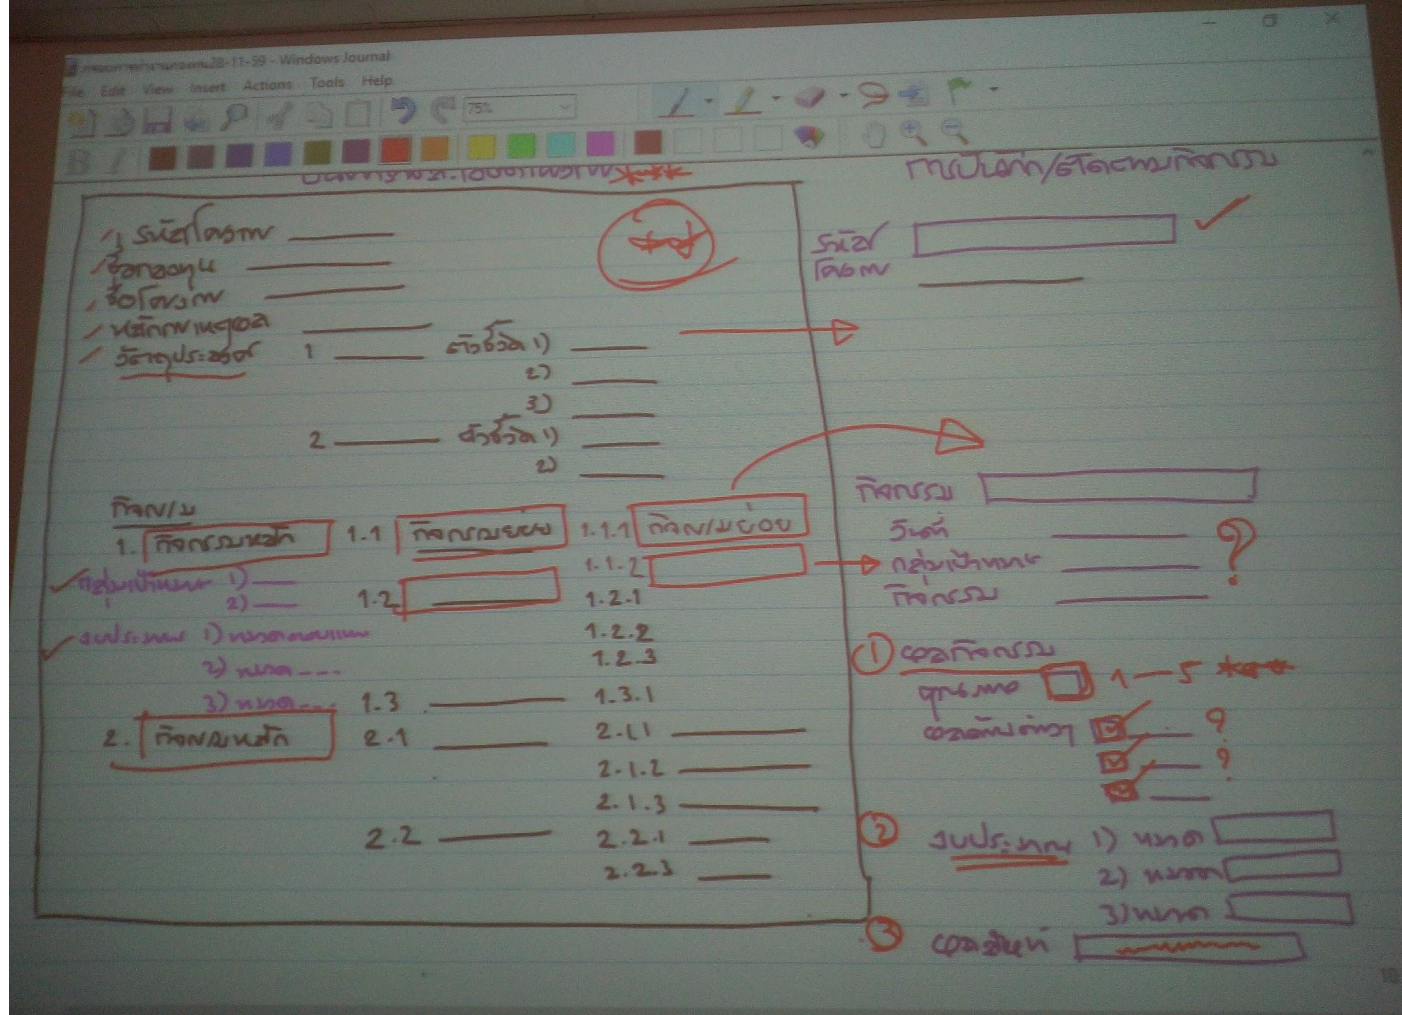 28-11-59 - Windows Journal
File Edit View Insert Actions Tools Help
75%
B I
การบันทึก/ติดตามกิจกรรม
รหัสโครงการ
ชื่อกองทุน
ชื่อโครงการ
หลักการเหตุผล
วัตถุประสงค์ 1 ตัวชี้วัด 1)
2)
3)
2 ตัวชี้วัด 1)
2)
กิจกรรม
1. กิจกรรมหลัก 1.1 กิจกรรมย่อย 1.1.1 กิจกรรมย่อย
กลุ่มเป้าหมาย 1) 1.1.2
2) 1.2 1.2.1
งบประมาณ 1) หมวดตอบแทน 1.2.2
2) หมวด---- 1.2.3
3) หมวด--- 1.3 1.3.1
2. กิจกรรมหลัก 2.1 2.1.1
2.1.2
2.1.3
2.2 2.2.1
2.2.3
รหัส
โครงการ
กิจกรรม
วันที่
กลุ่มเป้าหมาย ?
กิจกรรม
1 ผลกิจกรรม
คุณภาพ 1 — 5 ***
ผลด้านต่างๆ ?
?
2 งบประมาณ 1) หมวด
2) หมวด
3) หมวด
3